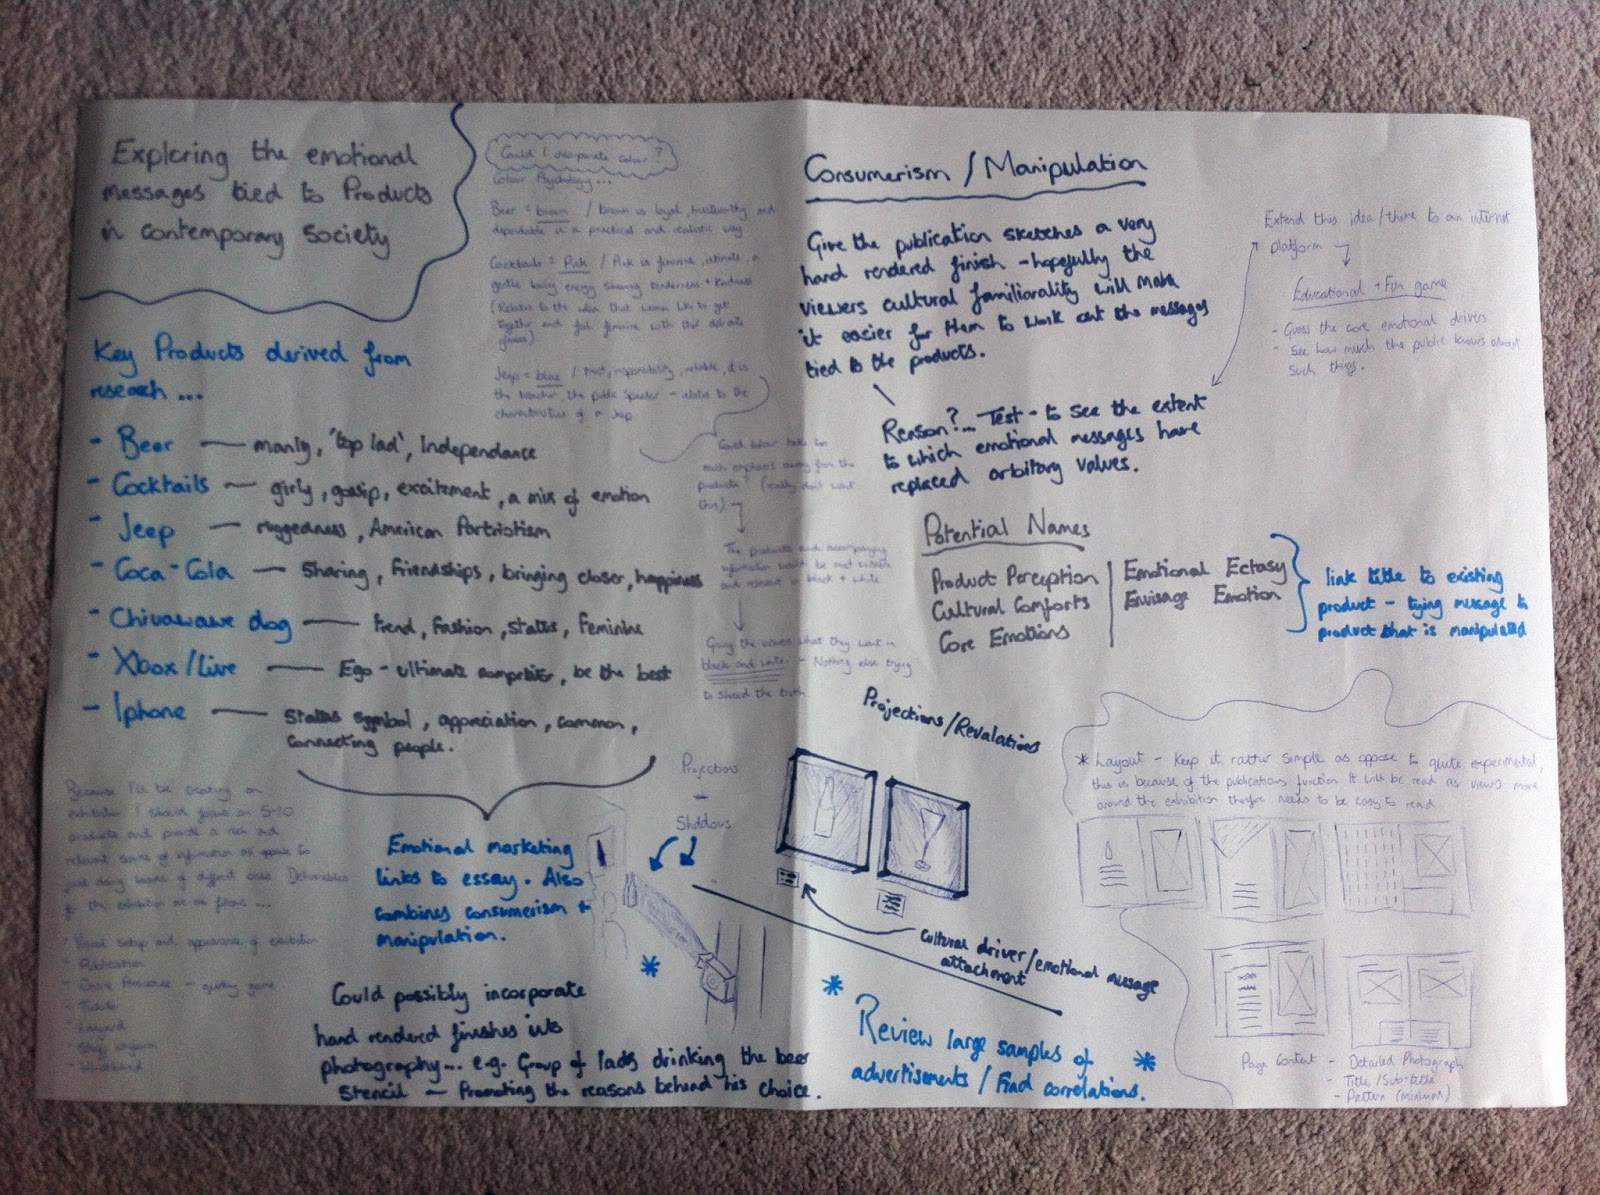 Exploring the emotional
messages tied to Products
in contemporary Society
Key Products derived from
research ...
- Beer — manly, 'top lad', Independance
- Cocktails — girly, gossip, excitement, a mix of emotion
- Jeep — ruggedness, American Partriotism
- Coca-Cola — Sharing, Friendships, bringing closer, happiness
- Chiuawawe dog — trend, fashion, status, feminine
- Xbox/Live — Ego - ultimate competitor, be the best
- Iphone — Status symbol, appreciation, common,
connecting people.
Because I'll be creating an
exhibition I should focus on 5-10
products and provide a rich and
relevant source of information as oppose to
just doing loads of different ones. Deliverables
for the exhibition are as follows ...
Visual setup and appearance of exhibition
- Publication
- quirky game
- Tickets
- Layard
- Staff uniform
- Wristband
Emotional marketing
links to essay. Also
combines consumerism +
manipulation.
Could possibly incorporate
hand rendered finishes into
photography... e.g. Group of lads drinking the beer
Stencil — Promoting the reasons behind his choice.
Could I incorporate colour?
Colour Psychology ...
Beer = brown / brown is loyal, trustworthy and
dependable in a practical and realistic way
Cocktails = Pink / Pink is feminine, intimate, a
gentle loving energy sharing tenderness + kindness
(Relates to the idea that women like to get
together and feel feminine with their delicate
glasses)
Jeep = blue / trust, responsibility, reliable, it is
the teacher, the public speaker - relates to the
characteristics of a Jeep
Could colour take too
much emphasis away from the
products? (really don't want
this)
The products and accompanying
information would be most suitable
and relevant in black + white
Giving the viewers what they want in
black and white - Nothing else trying
to shroud the truth
Projections
Shadows
Consumerism / Manipulation
Give the publication sketches a very
hand rendered finish - hopefully the
viewers cultural familiorality will make
it easier for them to work out the messages
tied to the products.
Reason?... Test - to see the extent
to which emotional messages have
replaced arbitory values.
Extend this idea/theme to an internet
platform
Educational + Fun game
- Guess the core emotional drivers
- See how much the public knows about
such things.
Potential Names
Product Perception
Cultural Comforts
Core Emotions
Emotional Ectasy
Envisage Emotion
link title to existing
product - tying message to
product that is manipulated
Projections/Revalations
cultural driver/emotional message
attachment
* Review large samples of
advertisements / Find correlations. *
* Layout - Keep it rather simple as oppose to quite experimental,
this is because of the publications function. It will be read as viewers move
around the exhibition therefore needs to be easy to read
Page Content - Detailed Photograph
- Title/Sub-title
- Pattern (minimum)